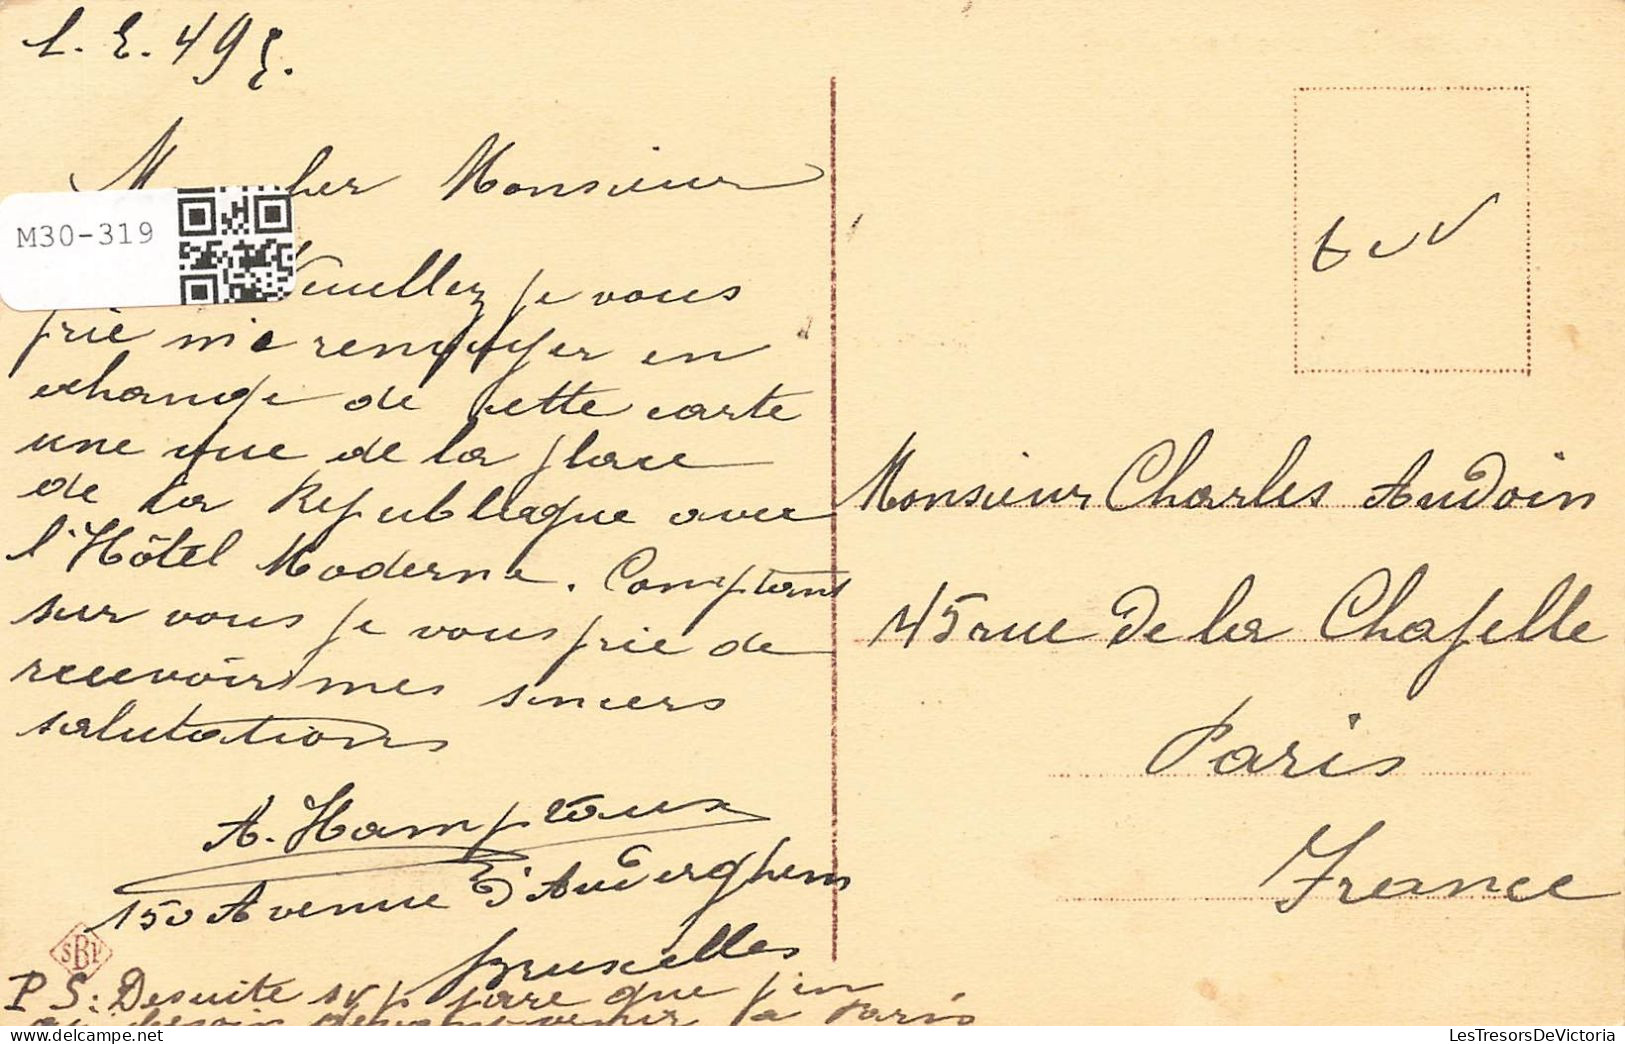 L. E. 49 ξ.
M cher Monsieur
M30-319
Veuillez je vous
prie me renvoyer en
echange de cette carte
une vue de la place
de la Republeque avec
l'Hôtel Moderne. Comptant
sur vous je vous prie de
recevoir mes sincers
salutations
A. Hamptaux
150 Avenue d'Auderghem
Bruxelles
SBP
PS: Desuite svp parce que j'en
ai besoin devant venir à Paris
tcv
Monsieur Charles Audoin
45 rue de la Chapelle
Paris
France
LesTresorsDeVictoria.com